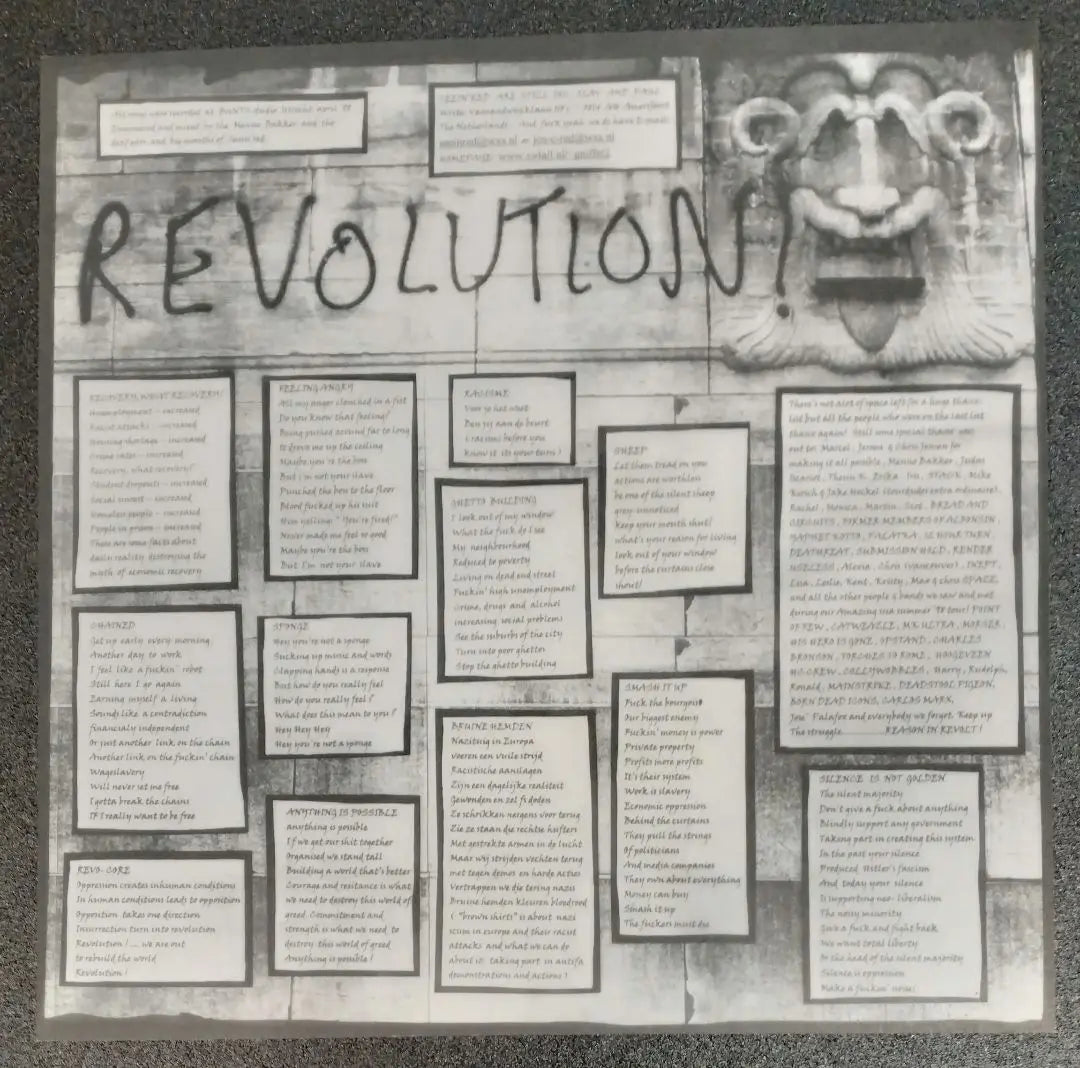 This songs were recorded at
and mixed by the Menno Bakker and the
ARE STILL
The Netherlands. And fuck yeah we do have E-mail:
or
HOMEPAGE: www.
REVOLUTION!
RECOVERY, WHAT RECOVERY?
Unemployment - increased
Racist attacks - increased
Housing shortage - increased
Crime rates - increased
Recovery, what recovery?
Student dropouts - increased
Social unrest - increased
Homeless people - increased
People in prison - increased
These are some facts about
daily reality destroying the
myth of economic recovery
CHAINED
Get up early every morning
Another day to work
I feel like a fuckin' robot
Still here I go again
Earning myself a living
Sounds like a contradiction
financialy independent
Or just another link on the chain
Another link on the fuckin' chain
Wageslavery
Will never set me free
I gotta break the chains
If I really want to be free
REVO-CORE
Oppression creates inhuman conditions
In human conditions leads to opposition
Opposition takes one direction
Insurrection turn into revolution
Revolution! .... we are out
to rebuild the world
Revolution!
FEELING ANGRY
All my anger clenched in a fist
Do you know that feeling?
Being pushed around far to long
to drove me up the ceiling
Maybe you're the boss
But i'm not your slave
Punched the boss to the floor
Blood fucked up his suit
Him yelling: "You're fired!"
Never made me feel so good
Maybe you're the boss
But I'm not your slave
SPONGE
Hey you're not a sponge
Sucking up music and words
Clapping hands is a response
But how do you really feel
How do you really feel?
What does this mean to you?
Hey Hey Hey
Hey you're not a sponge
ANYTHING IS POSSIBLE
anything is possible
If we get our shit together
Organised we stand tall
Building a world that's better
Courage and resitance is what
we need to destroy this world of
greed. Commitment and
strength is what we need to
destroy this world of greed
Anything is possible!
RACISME
Voor je het weet
Ben jij aan de beurt
( racisms before you
know it its your turn!
GHETTO BUILDING
I look out of my window
What the fuck do I see
My neighbourhood
Reduced to poverty
Living on dead end street
Fuckin' high unemployment
Crime, drugs and alcohol
increasing social problems
See the suburbs of the city
Turn into poor ghettos
Stop the ghetto building
BRUINE HEMDEN
Nazituig in Europa
voeren een vuile strijd
Racistische aanslagen
Zijn een dagelijke realiteit
Gewonden en zelfs doden
Ze schrikken nergens voor terug
Zie ze staan die rechtse hufters
Met gestrekte armen in de lucht
Maar wij strijden vechten terug
met tegen demos en harde acties
Vertrappen we die tering nazis
Bruine hemden kleuren bloedrood
( "brown shirts" is about nazi
scum in europe and their racist
attacks and what we can do
about it: taking part in antifa
demonstrations and actions!
SHEEP
Let them tread on you
actions are worthless
be one of the silent sheep
grey unnoticed
keep your mouth shut!
what's your reason for living
look out of your window
before the curtains close
shout!
SMASH IT UP
Fuck the bourgois
Our biggest enemy
Fuckin' money is power
Private property
Profits more profits
It's their system
Work is slavery
Economic oppression
Behind the curtains
They pull the strings
Of politicians
And media companies
They own about everything
Money can buy
Smash it up
The fuckers must die
There's not alot of space left for a huge thanx-
list but all the people who were on the last list
thanx again! Still some special thanx
out to: Marcel, Jeroen & Chris Jensen for
making it all possible, Menno Bakker, Judas
Iscariot, Erika, STACK, Mike
& Jake Heckel (tourguides extra ordinaire),
Rachel, Monica, Martin, BREAD AND
CIRCUITS, FORMER MEMBERS OF
YAPHET KOTTO, PALATKA, 12 HOUR TURN,
DEATHREAT, SUBMISSION HOLD, RENDER
USELESS, Chris (vancouver), INEPT,
Lisa, Leslie, Kent, Kristy, Max & chris SPACE,
and all the other people & bands we saw and met
during our Amazing usa summer '98 tour! POINT
OF FEW, CATWEAZLE, MK ULTRA, MORSER,
HIS HERO IS GONE, UPSTAND, CHARLES
BRONSON, TORCHES TO ROME, HOOGEVEEN
HC CREW, COLLYWOBBLES, Harry, Rudolph,
Ronald, MAINSTRIKE, DEADSTOOL PIGEON,
BORN DEAD ICONS, CARLOS MARX,
Jose Palafox and everybody we forgot. Keep up
The struggle. REASON IN REVOLT!
SILENCE IS NOT GOLDEN
The silent majority
Don't give a fuck about anything
Blindly support any government
Taking part in creating this system
In the past your silence
Produced Hitler's fascism
And today your silence
Is supporting neo-liberalism
The noisy minority
Give a fuck and fight back
We want total liberty
In the head of the silent majority
Silence is oppression
Make a fuckin' noise